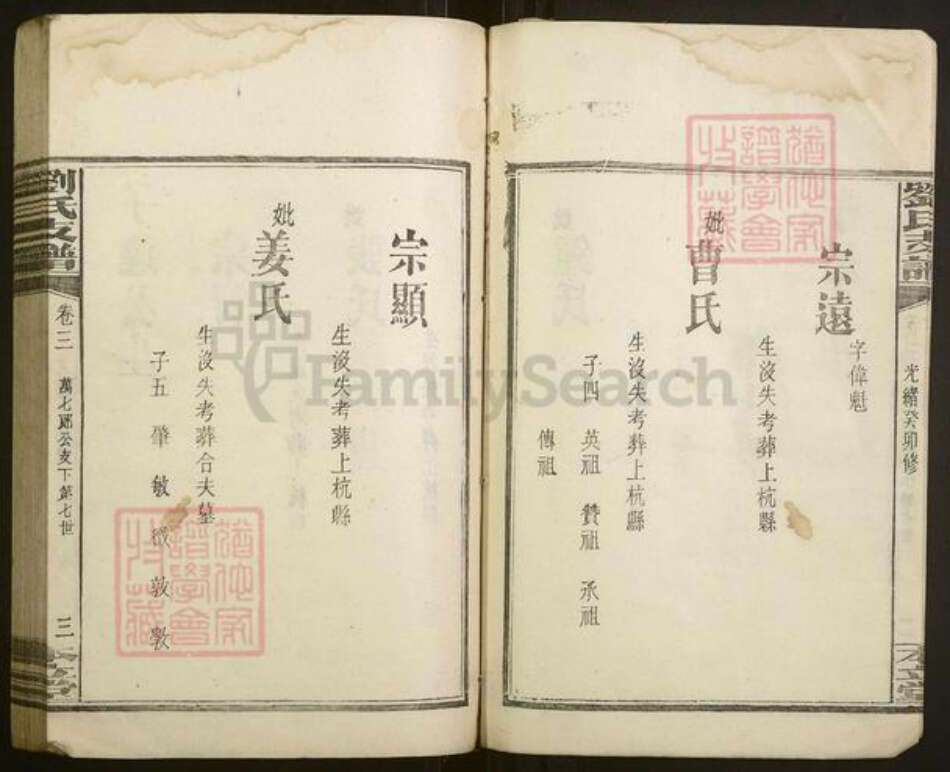 劉氏支譜
光緒癸卯修
宗遠
字偉魁
生沒失考葬上杭縣
妣曹氏
生沒失考葬上杭縣
子四 英祖 贊祖 承祖
傳祖
宗顯
生沒失考葬上杭縣
妣姜氏
生沒失考葬合夫墓
子五 肇 敏 徽 敦 敫
劉氏支譜
卷三
萬七郎公支下第七世
三
本立堂
FamilySearch